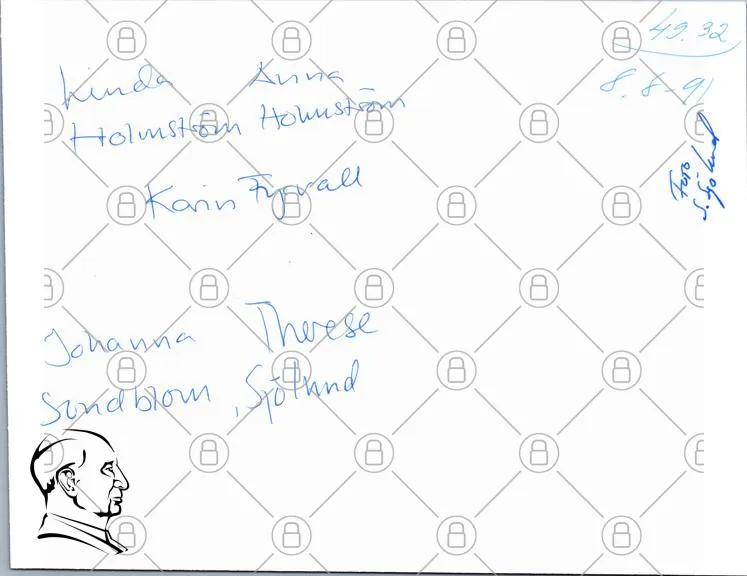 49.32
8.8-91
Linda Anna
Holmström Holmström
Karin Fyrvall
Foto
S. Sjölund
Johanna Therese
Sandblom, Sjölund